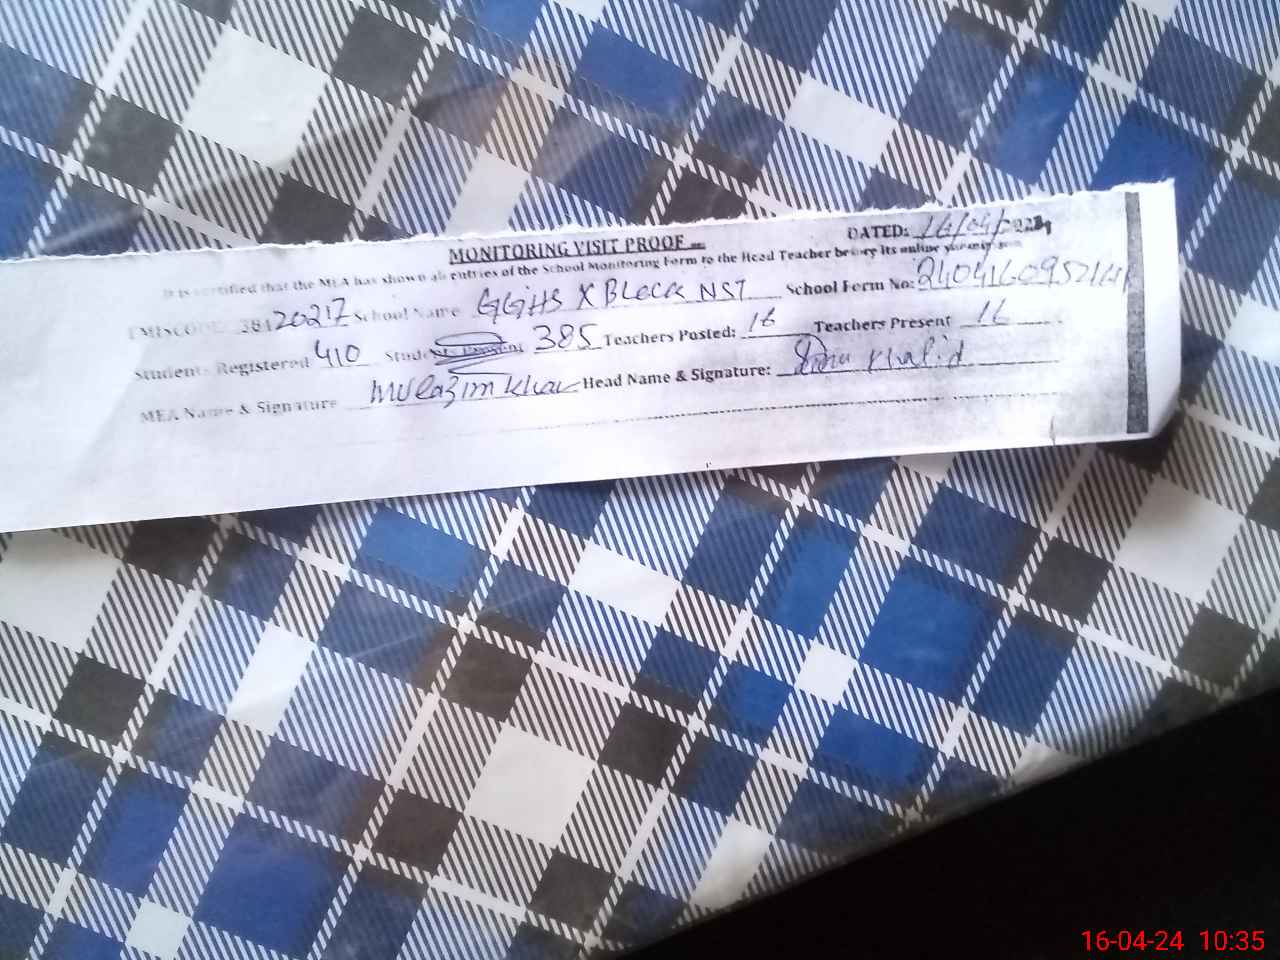 MONITORING VISIT PROOF
DATED: 16/04/2024
It is certified that the MEA has shown all entries of the School Monitoring Form to the Head Teacher before its online
EMISCODE 38120217 School Name GGHS X Block NST School Form No: 24041609521
Students Registered 410 Students Present 385 Teachers Posted: 16 Teachers Present 16
MEA Name & Signature Mulazim Khan Head Name & Signature: Khalid
16-04-24 10:35